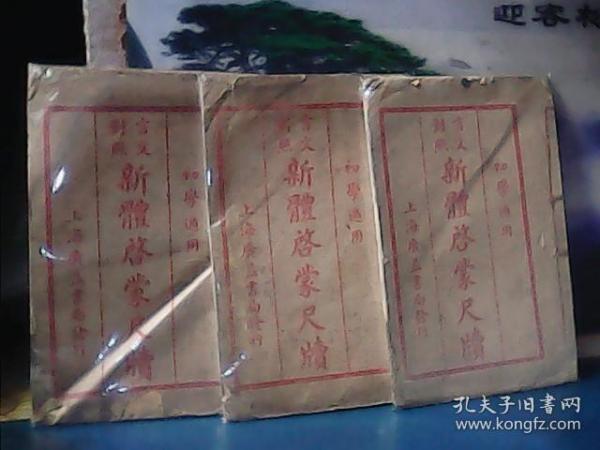 迎客松
初學適用
言文
對照
新體啓蒙尺牘
上海廣益書局發行
初學適用
言文
對照
新體啓蒙尺牘
上海廣益書局發刊
初學適用
言文
對照
新體啓蒙尺牘
上海廣益書局發行
孔夫子旧书网
www.kongfz.com